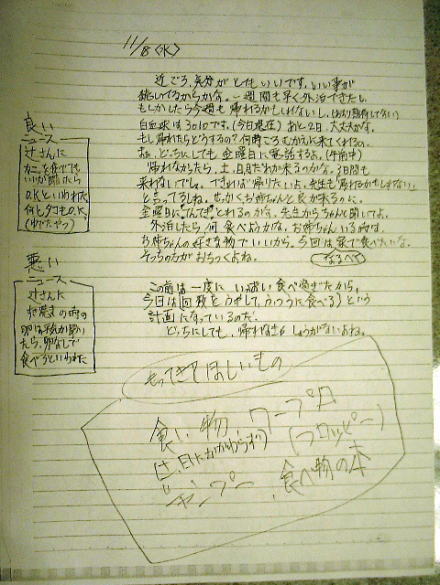 11/8(水)
近ごろ、気分がとてもいいです。いい事が
続いてるからかな。一週間も早く外泊できたし、
もしかしたら今週も帰れるかもしれないし。
白血球は3010です。(今日現在)あと2日、大丈夫かな。
もし帰れたらどうするの?何時ごろむかえに来てくれるの。
まぁ、どっちにしても金曜日に電話するよ。(午前中)
帰れなかったら、土、日だれか来るのかな。3日間も
来れないでしょ。できれば帰りたいよ。先生も「帰れるかもしれない」
と言ってるしね。せっかくお姉ちゃんと
金曜日に 先生からちゃんと聞いてよ。
外泊したら何食べようかな。お姉ちゃんいる時は、
お姉ちゃんの好きな物でいいから。今回は家で食べたいな。
そっちの方がおちつくよね。
なるべく
この前は一度にいっぱい食べ過ぎたから。
今日は「回数をふやして、ふつうに食べる」という
計画になっているのだ。
どっちにしても、帰れなきゃしょうがないよね。
良い
ニュース
辻さんに
カニを食べても
いいか聞いたら
O.Kといわれた
何とタコもO.K.
(ゆでたやつ)
悪い
ニュース
辻さんに
の時の
卵は
たら、卵なしで
食べろといわれた
もってきてほしいもの
食い物、ワープロ
(土、日にかかわらず)
(フロッピー)
ジャンプ 、食べ物の本